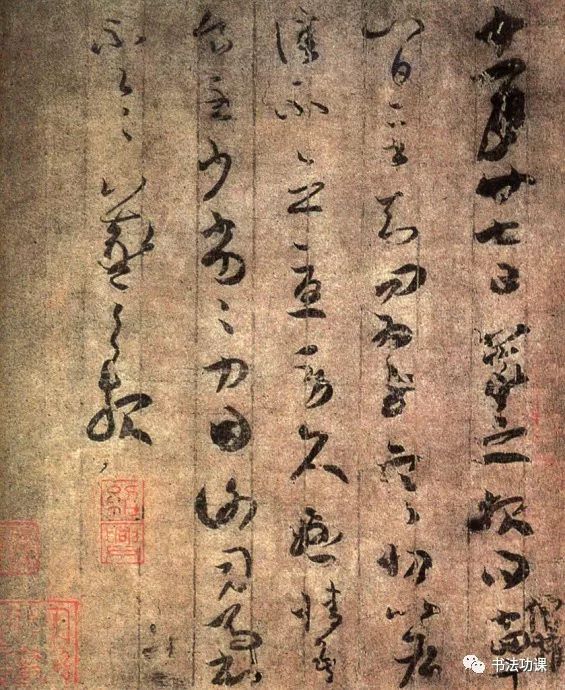 十一月廿七日羲之報得十四
十八日二書知問為慰寒切比各
佳不念憂勞久懸情吾
食甚少劣劣力因謝司馬書
不一一羲之報
僧權
紹興
书法功课